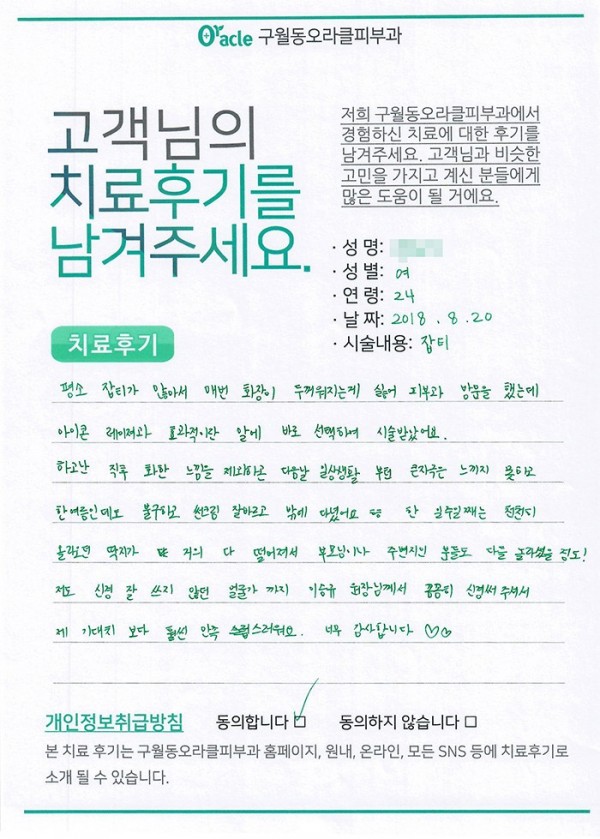 Oracle 구월동오라클피부과
고객님의
치료후기를
남겨주세요.
저희 구월동오라클피부과에서
경험하신 치료에 대한 후기를
남겨주세요. 고객님과 비슷한
고민을 가지고 계신 분들에게
많은 도움이 될 거에요.
· 성 명:
· 성 별: 여
· 연 령: 24
· 날 짜: 2018 . 8 . 20
· 시술내용: 잡티
치료후기
평소 잡티가 많아서 매번 화장이 두꺼워지는게 싫어 피부과 방문을 했는데
아이콘 레이저가 효과적이란 말에 바로 선택하여 시술받았어요.
하고난 직후 화한 느낌을 제외하곤 다음날 일상생활 부터 큰자극은 느끼지 못하고
한여름인데도 불구하고 썬크림 잘바르고 밖에 다녔어요 한 일주일째는 천천히
올라오던 딱지가 거의 다 떨어져서 부모님이나 주변지인 분들도 다들 놀라셨을 정도!
저도 신경 잘 쓰지 않던 얼굴가 까지 이승유 원장님께서 꼼꼼히 신경써 주셔서
제 기대치 보다 훨씬 만족 스럽스러워요. 너무 감사합니다 ♡♡
개인정보취급방침 동의합니다 ☑ 동의하지 않습니다 □
본 치료 후기는 구월동오라클피부과 홈페이지, 원내, 온라인, 모든 SNS 등에 치료후기로
소개 될 수 있습니다.